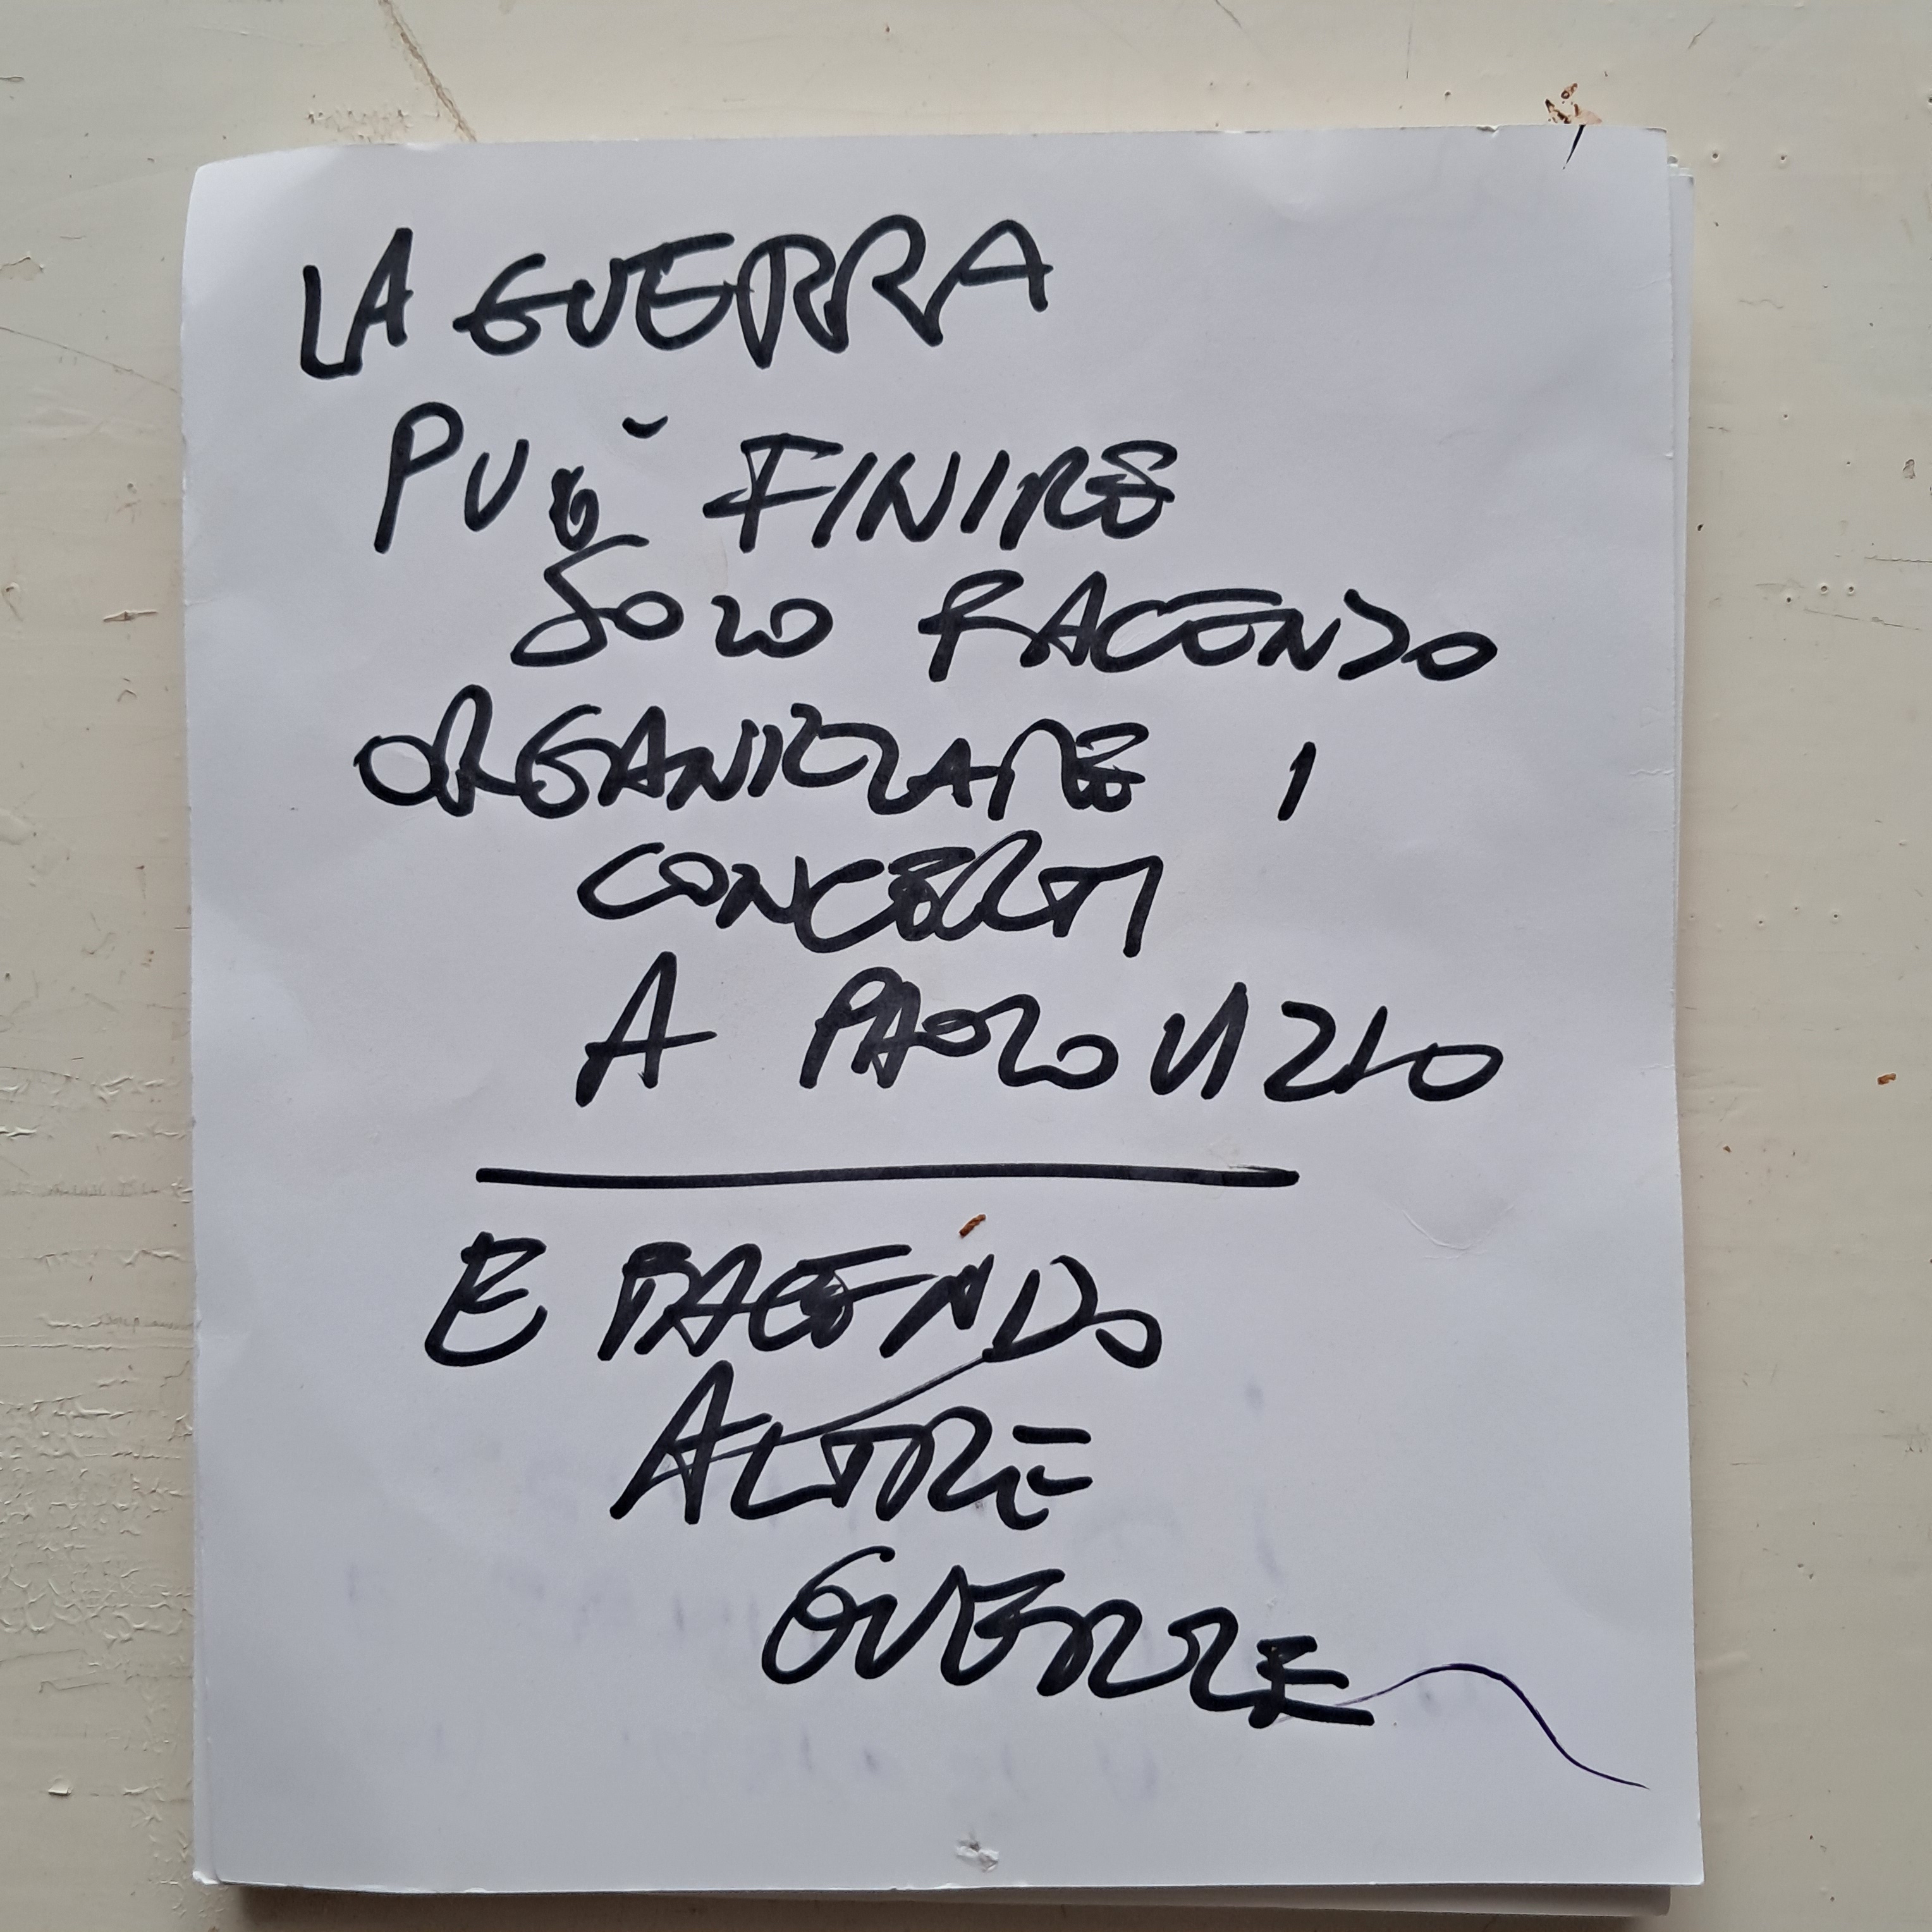 LA GUERRA
PUÒ FINIRE
SOLO FACENDO
ORGANIZZARE I
CONCERTI
A PAOLO VIZIO
E FACENDO
ALTRE
GUERRE